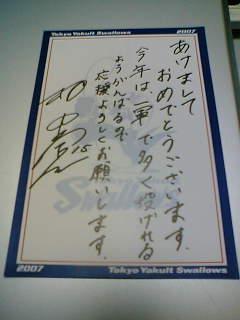 Tokyo Yakult Swallows 2007
あけまして
おめでとうございます.
今年は、一軍で多く投げれる
ようがんばるので
応援よろしくお願いします.
Swallows
2007 Tokyo Yakult Swallows